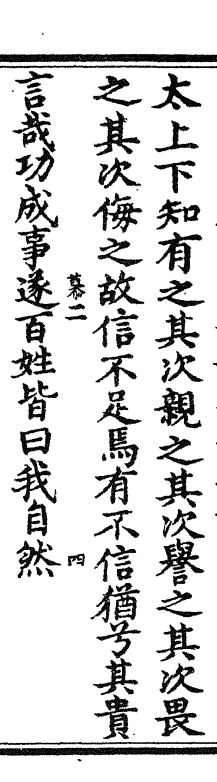 太上下知有之其次親之其次譽之其次畏
之其次侮之故信不足焉有不信猶兮其貴
慕二
四
言哉功成事遂百姓皆曰我自然